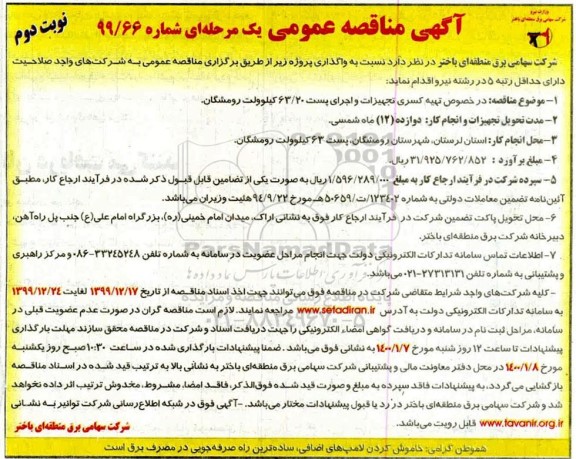 وزارت نیرو
شرکت سهامی برق منطقه‌ای باختر
آگهی مناقصه عمومی یک مرحله‌ای شماره ۹۹/۶۶
نوبت دوم
شرکت سهامی برق منطقه‌ای باختر در نظر دارد نسبت به واگذاری پروژه زیر از طریق برگزاری مناقصه عمومی به شرکت‌های واجد صلاحیت
دارای حداقل رتبه ۵ در رشته نیرو اقدام نماید:
۱- موضوع مناقصه: در خصوص تهیه کسری تجهیزات و اجرای پست ۶۳/۲۰ کیلوولت رومشگان.
۲- مدت تحویل تجهیزات و انجام کار: دوازده (۱۲) ماه شمسی.
۳- محل انجام کار: استان لرستان، شهرستان رومشگان، پست ۶۳ کیلوولت رومشگان.
۴- مبلغ برآورد : ۳۱/۹۲۵/۷۶۲/۸۵۲ ریال.
۵- سپرده شرکت در فرآیند ارجاع کار به مبلغ ۱/۵۹۶/۲۸۹/۰۰۰ ریال به صورت یکی از تضامین قابل قبول ذکر شده در فرآیند ارجاع کار، مطابق
آئین‌نامه تضمین معاملات دولتی به شماره ۱۲۳۴۰۲/ت۵۰۶۵۹هـ مورخ ۹۴/۹/۲۲ هئیت وزیران می‌باشد.
۶- محل تحویل پاکت تضمین شرکت در فرآیند ارجاع کار فوق به نشانی اراک، میدان امام خمینی (ره)، بزرگراه امام علی(ع) جنب پل راه‌آهن،
دبیرخانه شرکت برق منطقه‌ای باختر.
۷- اطلاعات تماس سامانه تدارکات الکترونیکی دولت جهت انجام مراحل عضویت در سامانه به شماره تلفن ۳۳۲۴۵۲۴۸-۰۸۶ و مرکز راهبری
و پشتیبانی به شماره تلفن ۲۷۳۱۳۱۳۱-۰۲۱ می‌باشد.
-کلیه شرکت‌های واجد شرایط متقاضی شرکت در مناقصه فوق می‌توانند جهت اخذ اسناد مناقصه از تاریخ ۱۳۹۹/۱۲/۱۷ لغایت ۱۳۹۹/۱۲/۲۴
به سامانه تدارکات الکترونیکی دولت به آدرس www.setadiran.ir مراجعه نمایند. لازم است مناقصه گران در صورت عدم عضویت قبلی در
سامانه، مراحل ثبت نام در سامانه و دریافت گواهی امضاء الکترونیکی را جهت دریافت اسناد و شرکت در مناقصه محقق سازند مهلت بارگذاری
پیشنهادات تا ساعت ۱۲ روز شنبه مورخ ۱۴۰۰/۱/۷ به نشانی فوق می‌باشد . ضمنا پیشنهادات بارگذاری شده در ساعت ۱۰:۳۰ صبح روز یکشنبه
مورخ ۱۴۰۰/۱/۸ در محل دفتر معاونت مالی و پشتیبانی شرکت سهامی برق منطقه‌ای باختر به نشانی بالا به ترتیب قید شده در اسناد مناقصه
بازگشایی می‌گردد. به پیشنهادات فاقد سپرده به مبلغ و صورت قید شده فوق‌الذکر، فاقد امضا، مشروط، مخدوش ترتیب اثر داده نخواهد
شد و شرکت سهامی برق منطقه‌ای باختر در رد یا قبول پیشنهادات مختار می‌باشد. -آگهی فوق در شبکه اطلاع‌رسانی شرکت توانیر به نشانی
www.tavanir.org.ir قابل رویت می‌باشد.
شرکت سهامی برق منطقه‌ای باختر
هموطن گرامی: خاموش کردن لامپ‌های اضافی، ساده‌ترین راه صرفه‌جویی در مصرف برق است
ParsNamadData